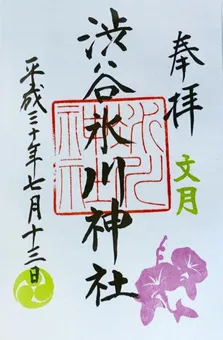 奉拝
文月
渋谷氷川神社
平成三十年七月十三日